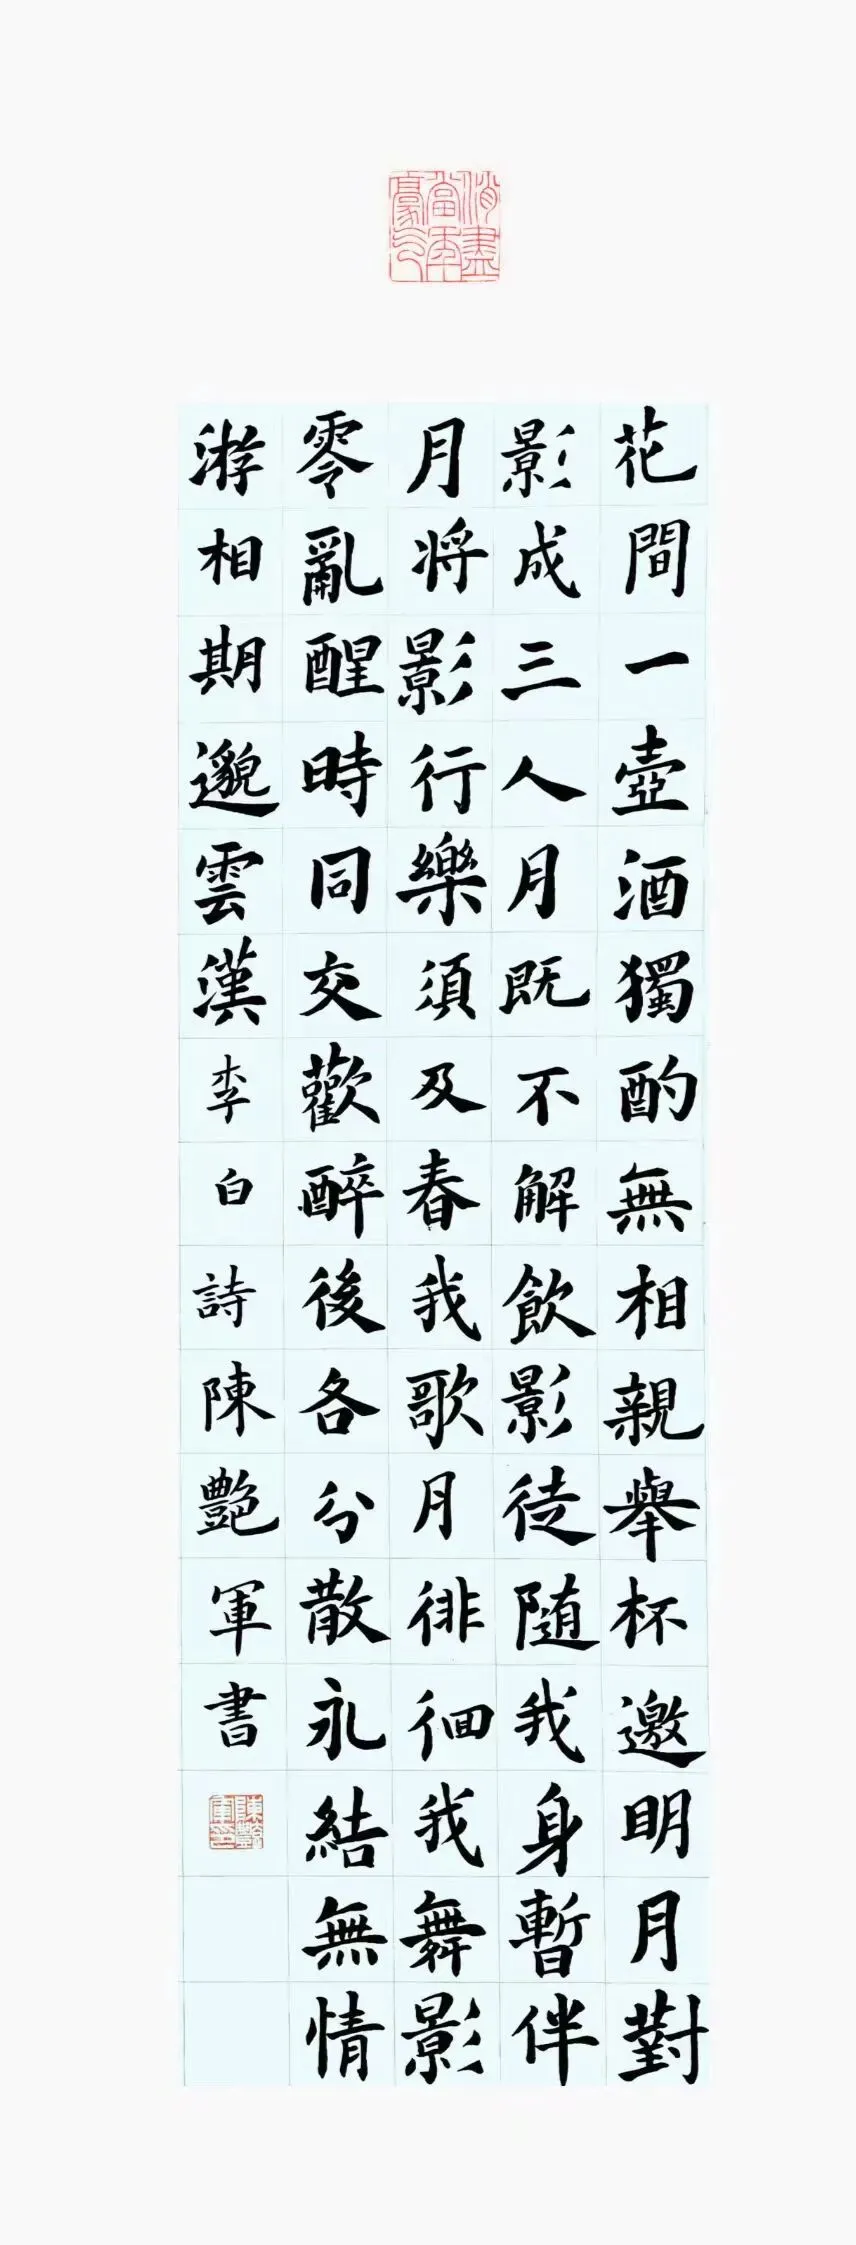 消盡當年豪气
花間一壺酒獨酌無相親舉杯邀明月對
影成三人月既不解飲影徒随我身暫伴
月将影行樂須及春我歌月徘徊我舞影
零亂醒時同交歡醉後各分散永結無情
游相期邈雲漢李白詩陳艶軍書